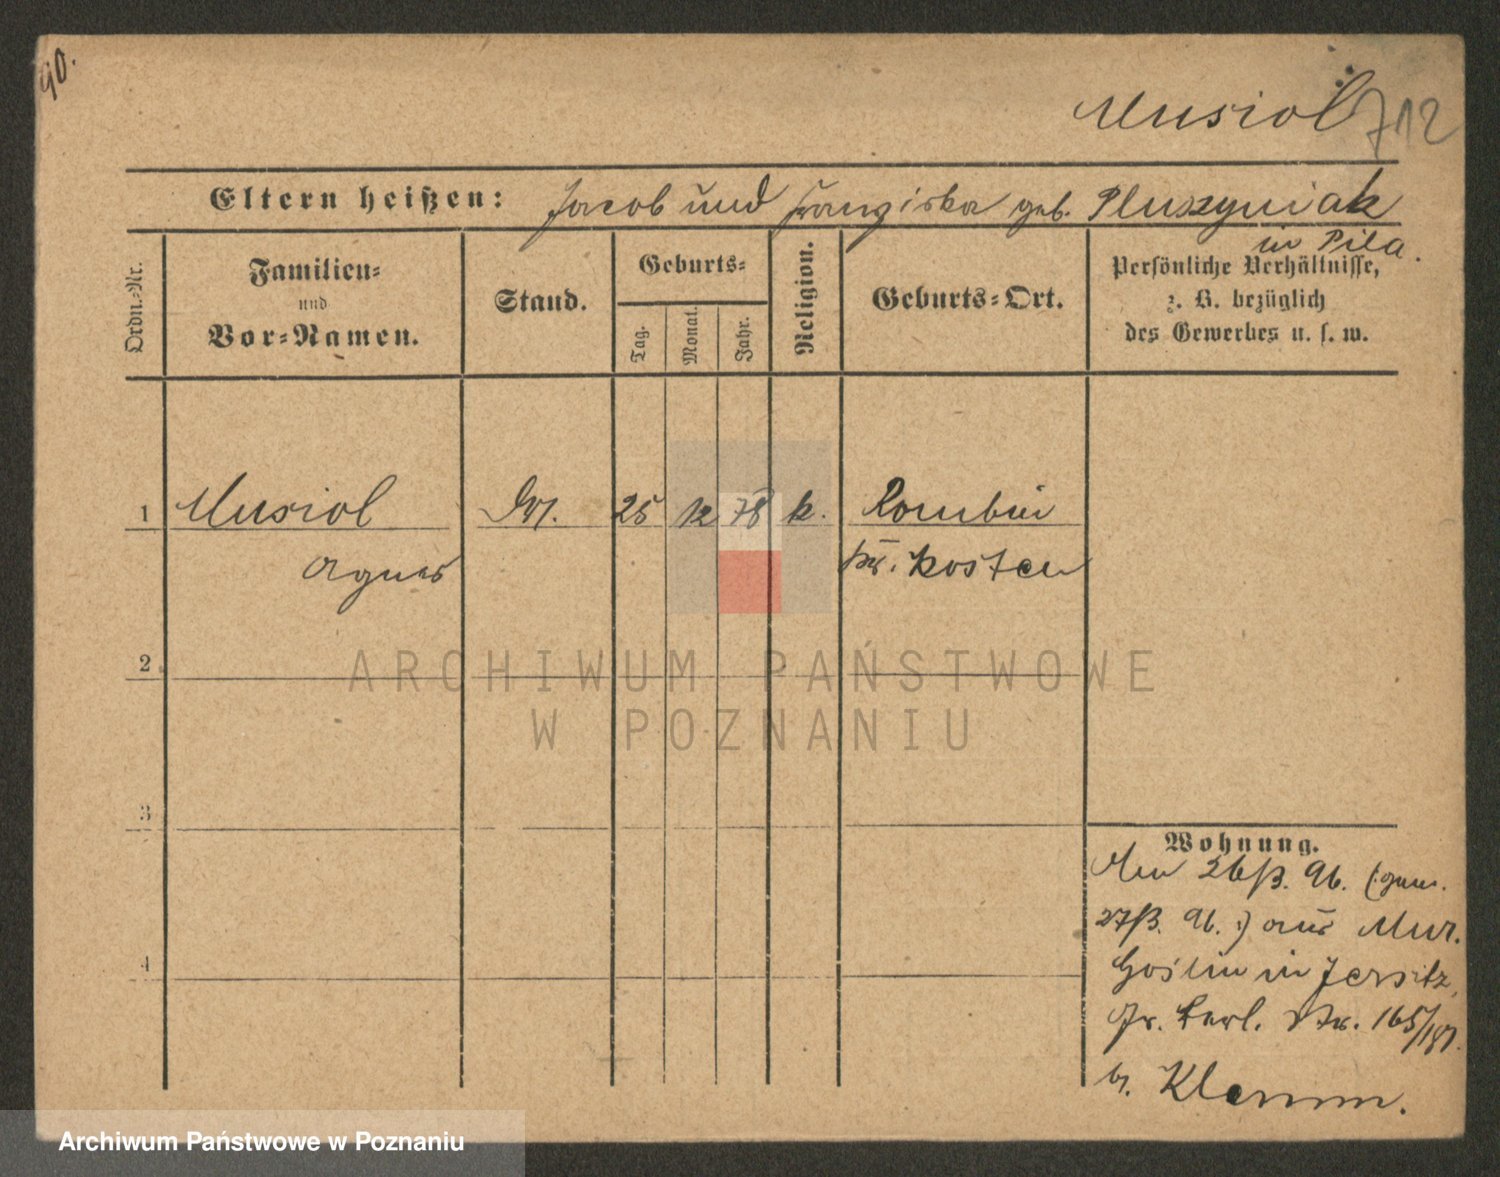 90.
Musiol 712
Eltern heißen: Jacob und Franziska geb. Pluszyniak
in Pila.
Ordn.-Nr.
Familien-
und
Vor-Namen.
Stand.
Geburts-
Tag.
Monat.
Jahr.
Religion.
Geburts-Ort.
Persönliche Verhältnisse,
z. B. bezüglich
des Gewerbes u. s. w.
1 Musiol 25 12 78 k. Rombin
Agnes Kr. Kosten
2
ARCHIWUM PAŃSTWOWE
W POZNANIU
3
4
Wohnung.
26/3. 96. (: gem.
27/3. 96. :) aus Mur.
Goslin in Jersitz,
Gr. Berl. Str. 165/187.
b. Klemm.
Archiwum Państwowe w Poznaniu